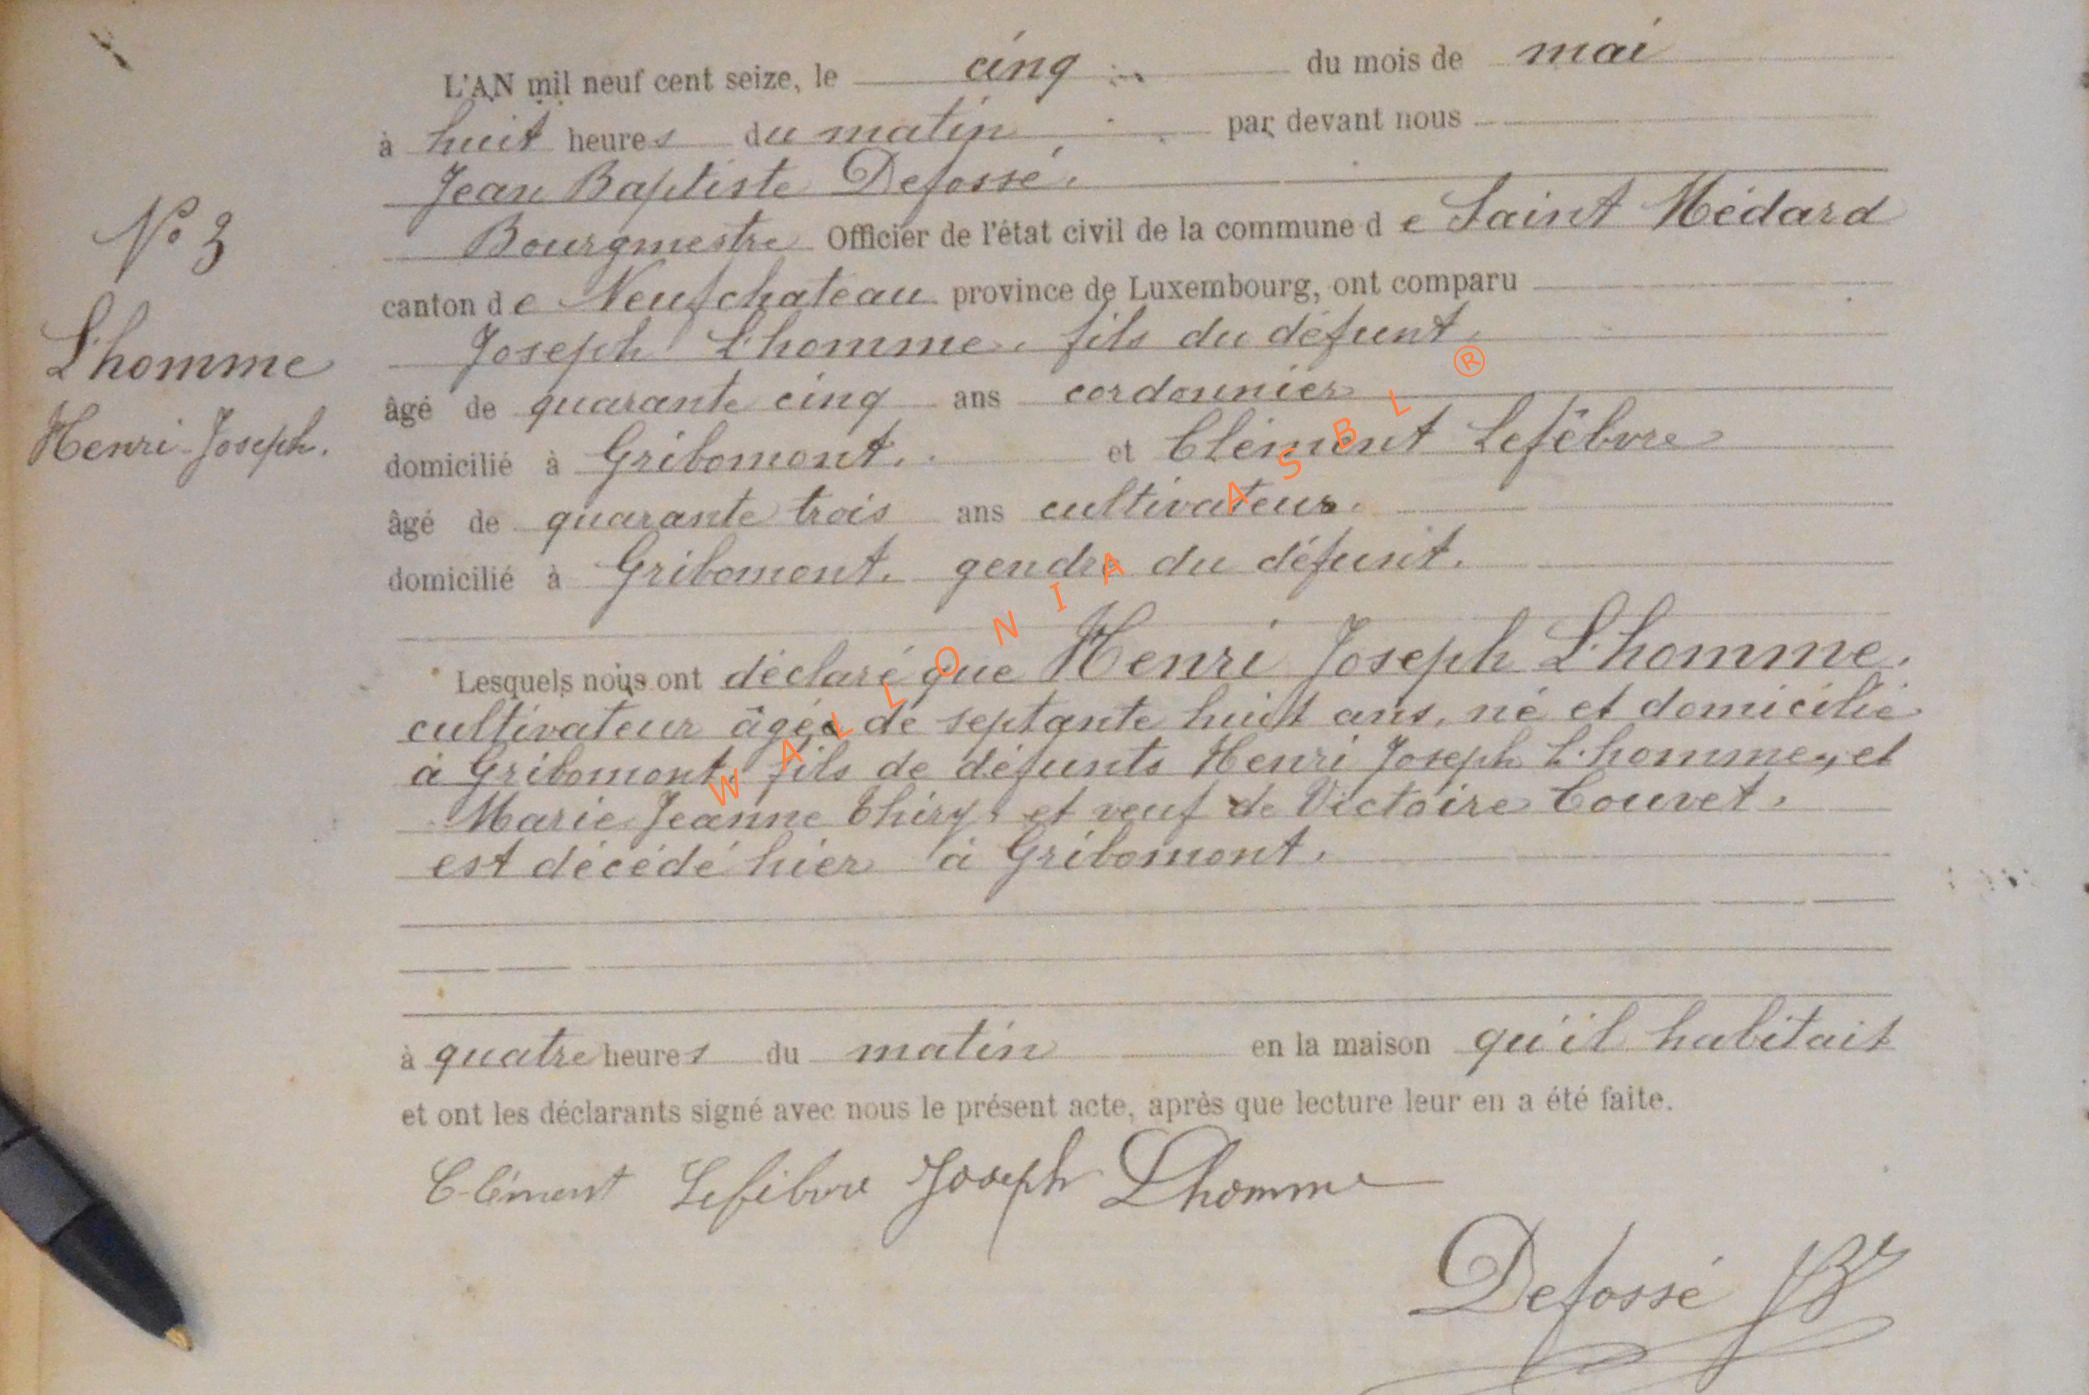 L'AN mil neuf cent seize, le cinq du mois de mai
à huit heures du matin par devant nous
Jean Baptiste Defossé.
Bourgmestre Officier de l'état civil de la commune de Saint Médard
canton de Neufchateau province de Luxembourg, ont comparu
Joseph Lhomme. fils du défunt.
âgé de quarante cinq ans cordonnier
domicilié à Gribomont. et Clément Lefêbvre
âgé de quarante trois ans cultivateur.
domicilié à Gribomont. gendre du défunt.
N° 3
Lhomme
Henri-Joseph.
Lesquels nous ont déclaré que Henri Joseph Lhomme.
cultivateur âgé de septante huit ans, né et domicilié
à Gribomont, fils de défunts Henri Joseph Lhomme, et
Marie Jeanne Thiry, et veuf de Victoire Couvet.
est décédé hier à Gribomont.
à quatre heures du matin en la maison qu'il habitait
et ont les déclarants signé avec nous le présent acte, après que lecture leur en a été faite.
Clément Lefêbvre Joseph Lhomme
Defossé JB
WALLONIA ASBL ®